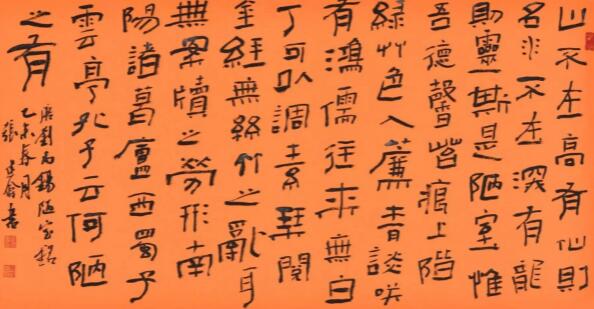 山不在高有仙則
名水不在深有龍
則靈斯是陋室惟
吾德馨苔痕上階
綠艸色入簾青談咲
有鴻儒往來無白
丁可以調素琴閱
金經無絲竹之亂耳
無案牘之勞形南
陽諸葛廬西蜀子
雲亭孔子云何陋
之有
唐劉禹錫陋室銘
乙未春月
張建會書